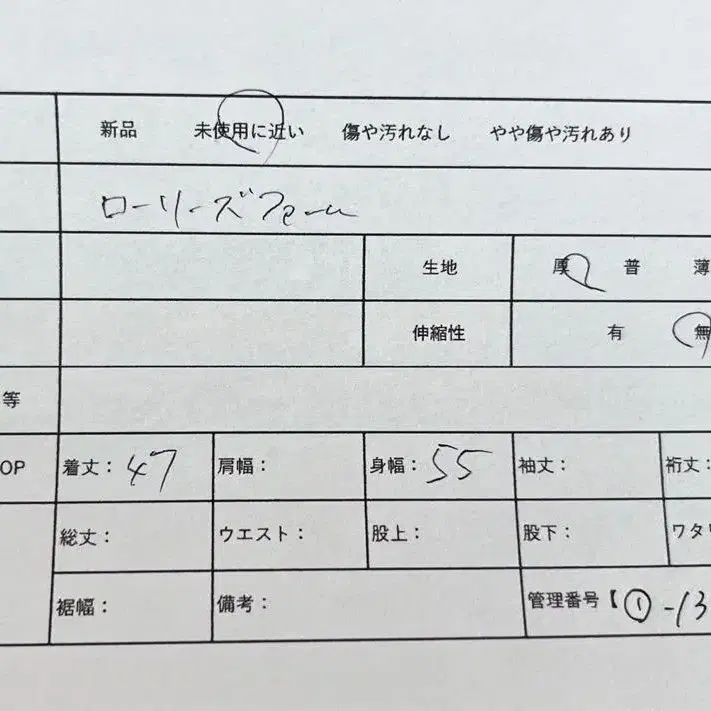 新品 未使用に近い 傷や汚れなし やや傷や汚れあり
ローリーズファーム
生地 厚 普 薄
伸縮性 有 無
等
OP 着丈：47 肩幅： 身幅：55 袖丈： 裄丈：
総丈： ウエスト： 股上： 股下： ワタ
裾幅： 備考： 管理番号【①-13